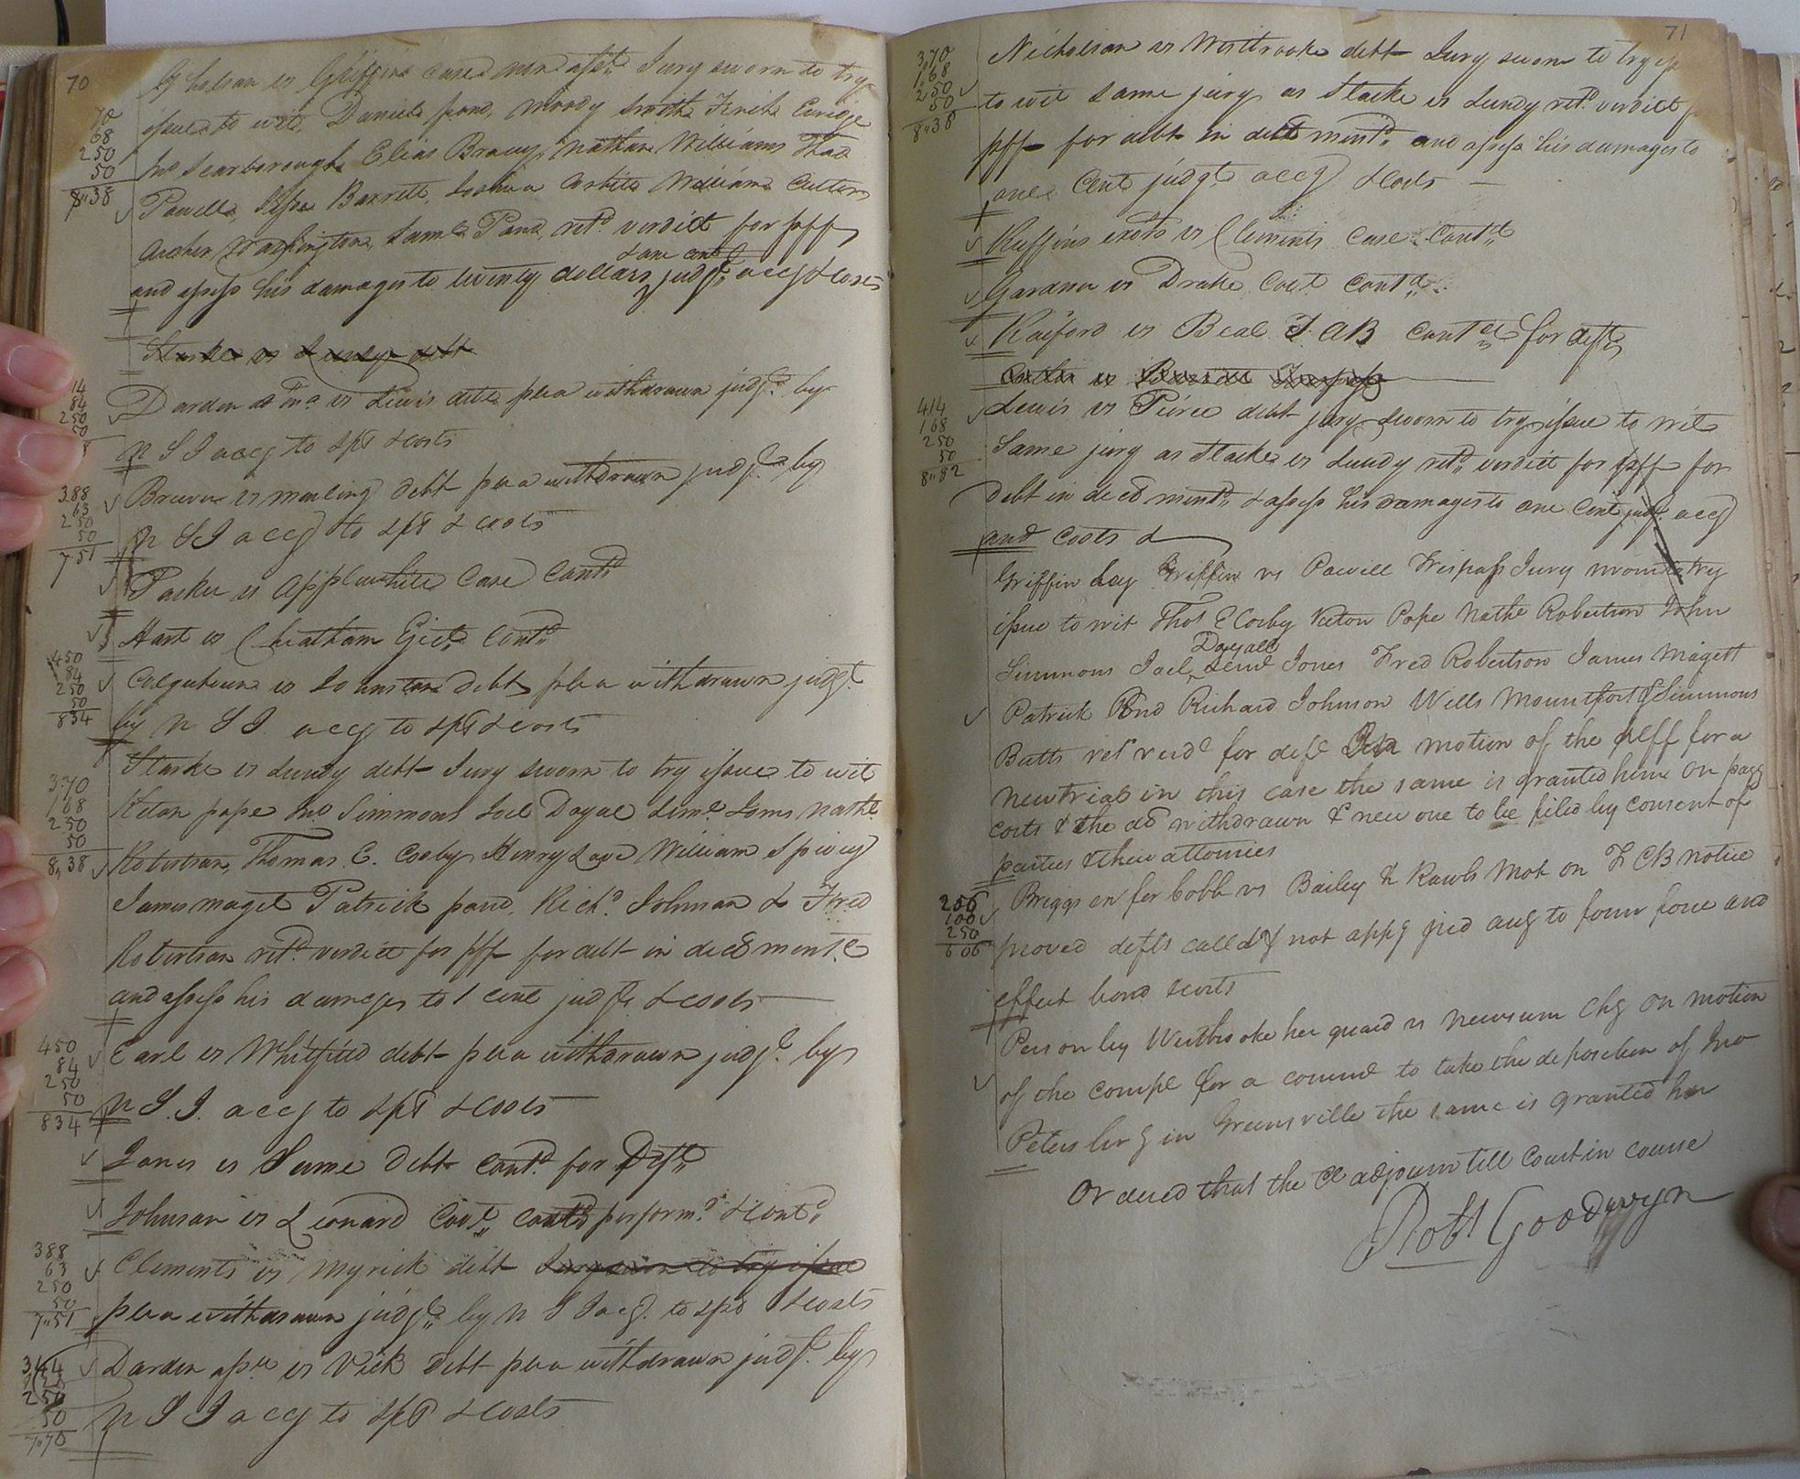 70
70
68
250
50
8"38
Gholson vs Griffin case &c Jury sworn to try
issue to wit, Daniel pond, Moody Smith,
Jno Scarborough Elias Bracy, Nathan Williams Thos
Powell, Jesse Barrett, Joshua Williams
Archer Washington, Saml Pond, retd verdict for plff
& one cent
and assess his damages to twenty dollars judgt accg & costs
Starke vs Lundy debt
14
84
250
50
Darden & Mc vs Lewis debt plea withdrawn judgt by
N S I accg to spt & costs
388
63
250
50
751
Brown vs debt plea withdrawn judgt by
N S I accg to spt & costs
Parker vs Applewhite Case Contd
Hart vs Cheatham Ejet Contd
450
84
250
50
834
Colquhoun vs Johnston debt plea withdrawn judgt
by N S I accg to spt & costs
370
168
250
50
8,38
Starke vs Lundy debt Jury sworn to try issue to wit
Keton pope Jno Simmons Joel Doyal Jones Nathl
Robertson, Thomas C. Cosby Henry Love William Spivey
James maget Patrick pond, Richd Johnson & Fred
Robertson retd verdict for plff for debt in decn mentd
and assess his damages to 1 cent judgt & costs
450
84
250
50
834
Earl vs Whitfield debt plea withdrawn judgt by
N S. I. accg to spt & costs
Jones vs Same Debt contd for Deft
Johnson vs Leonard Covt contd perform & contd
388
63
250
50
7"51
Clements vs Myrick debt Jury sworn to try issue
plea withdrawn judgt by N S I accg. to spt & costs
250
50
7"70
Darden assee vs Vick debt plea withdrawn judgt by
N S I accg to spt & costs
71
3,70
1,68
250
50
8"38
Nicholson vs Westbrooke debt Jury sworn to try iss
to wit same jury as Starke vs Lundy retd verdict
plff for debt in decn mentd and assess his damages to
one Cent judgt accg & Costs
Ruffins exors vs Clements Case Contd
Gardner vs Drake Covt Contd
Raiford vs Beal T AB contd for deft
414
168
250
50
8"82
Lewis vs Peirce debt jury sworn to try issue to wit
Same jury as Starke vs Lundy retd verdict for plff for
debt in decn mentd & assess his damages to one Cent judgt accg
and costs &
Griffin by Griffin vs Powell Trespass Jury sworn to try
issue to wit Thos C Cosby Keton Pope Nathl Robertson John
Doyall
Simmons Joel, Jones Fred Robertson James Magett
Patrick Pond Richard Johnson Wells Mountfort & Simmons
Butts ret verdt for deft On motion of the plff for a
new trial in this case the same is granted him on payg
costs & the decn withdrawn & new one to be filed by consent of
parties & their attornies
256
100
250
606
Briggs exr for Cobb vs Bailey & Rawls Mot on F CB notice
proved defts called & not appg jud accg to form force and
effect bond & costs
Person by Westbrooke her guard vs Newsum Chy On motion
of the compl for a commn to take the deposition of Jno
Peters in Greensville the same is granted her
Ordered that the Ct adjourn till Court in course
Robt Goodwyn